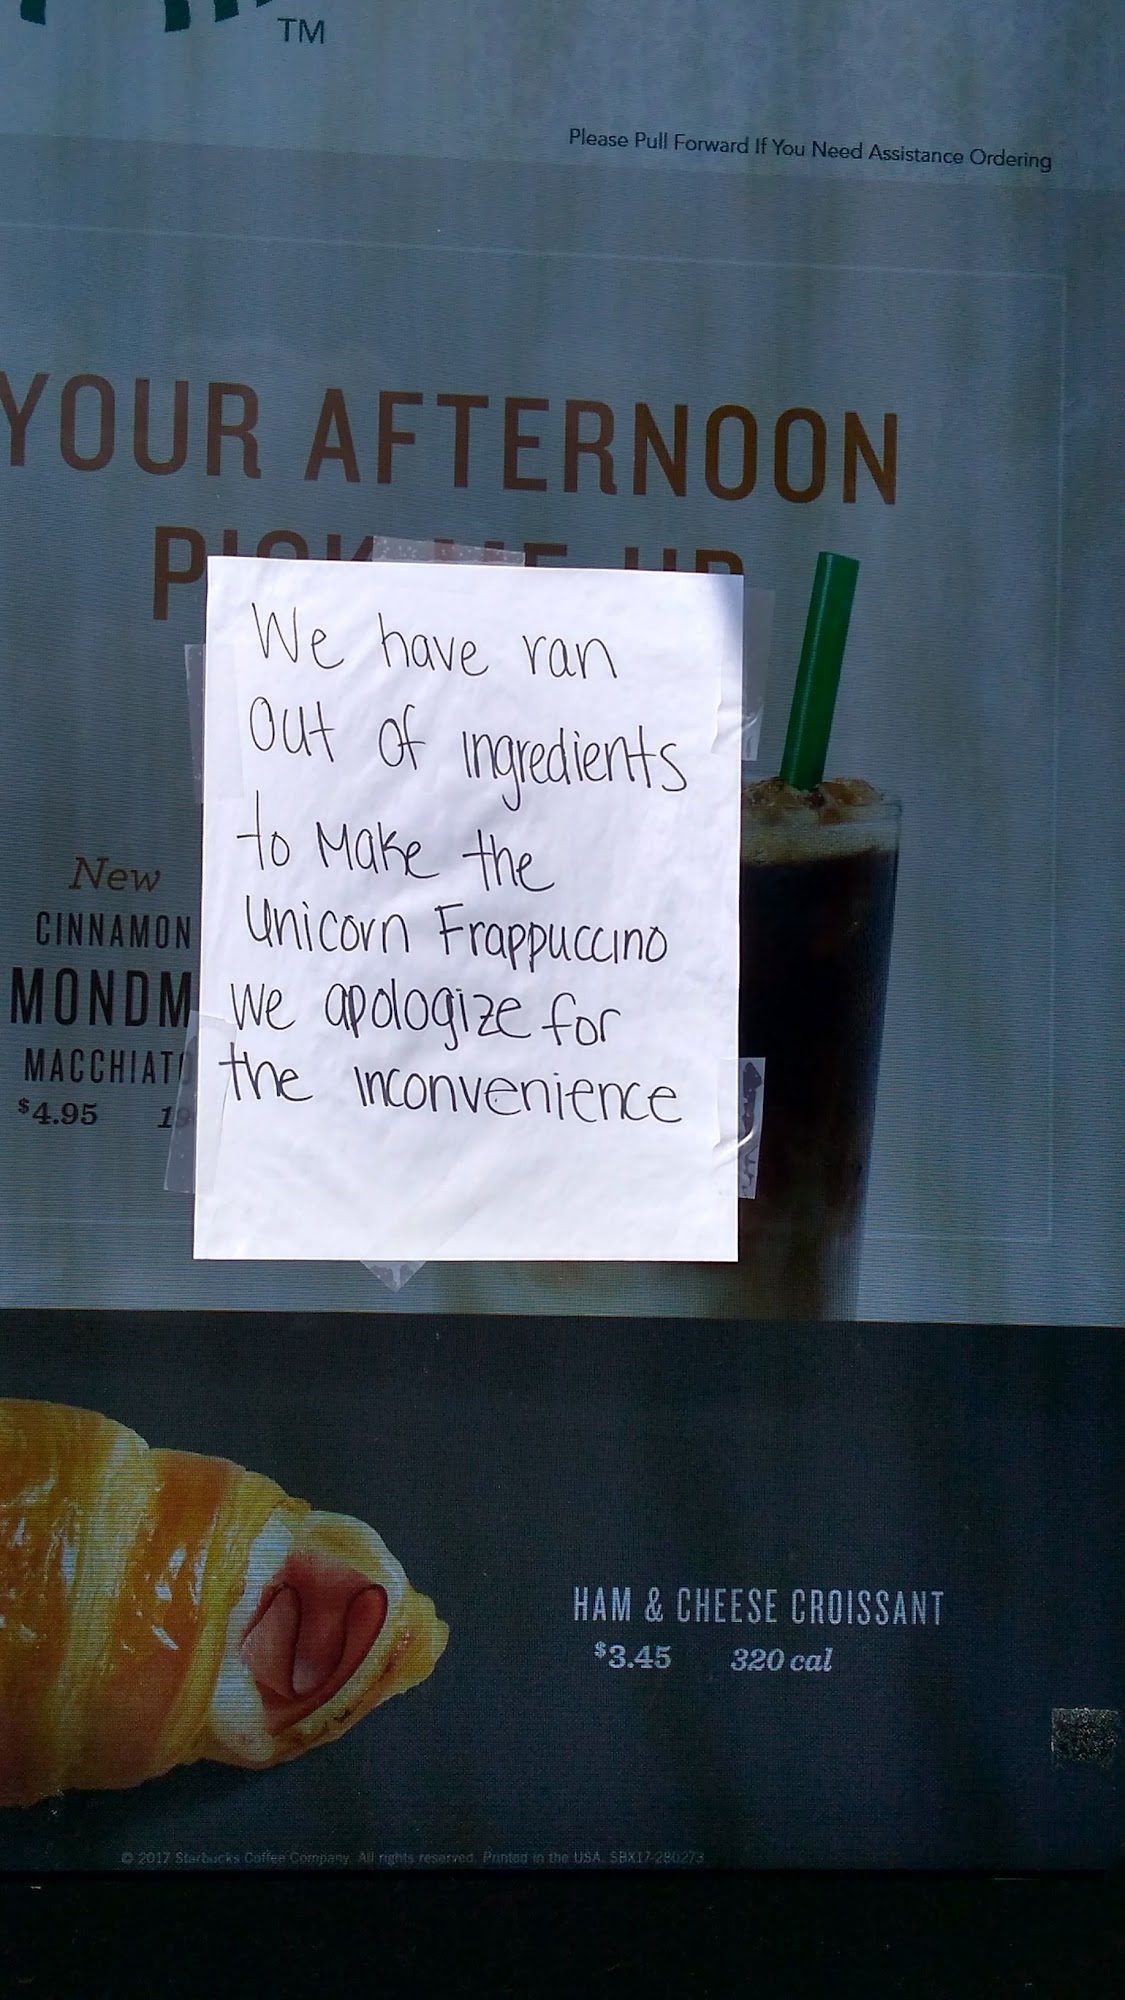 TM
Please Pull Forward If You Need Assistance Ordering
YOUR AFTERNOON
We have ran
out of ingredients
to make the
Unicorn Frappuccino
we apologize for
the inconvenience
New
CINNAMON
MONDM
MACCHIATO
$4.95
HAM & CHEESE CROISSANT
$3.45 320 cal
© 2017 Starbucks Coffee Company. All rights reserved. Printed in the USA. SBX17-280273